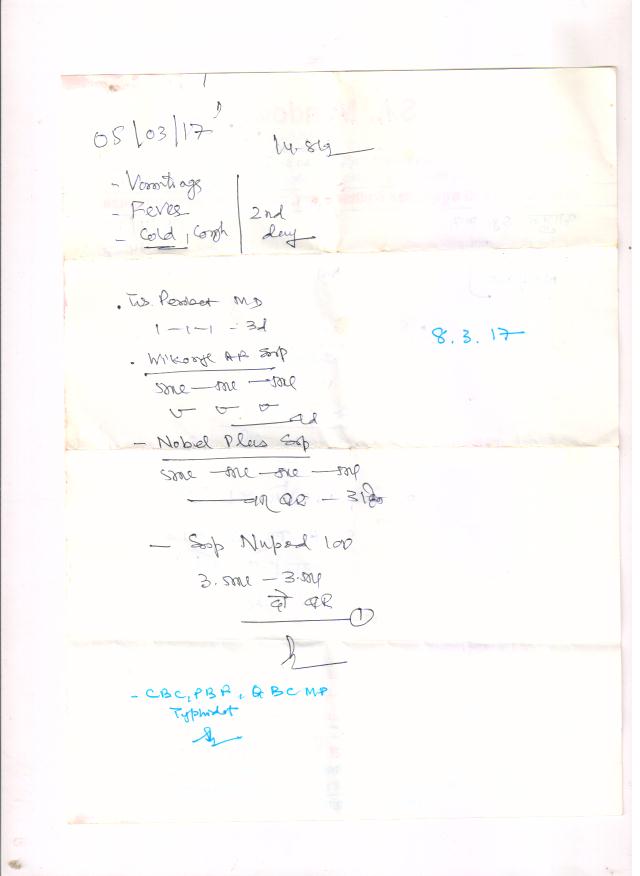 05/03/17
14.8kg
- Vomitings
- Fever
- Cold, Cough
2nd
day
MD
1-1-1 - 3d
8.3.17
AF Syp
5ml - 5ml - 5ml
- Nobel Plus Syp
5ml - 5ml - 5ml - 5ml
- 3 दिन
- Syp 100
3.5ml - 3.5ml
दो
1
- CBC, PBF, QBC MP
Typhidot